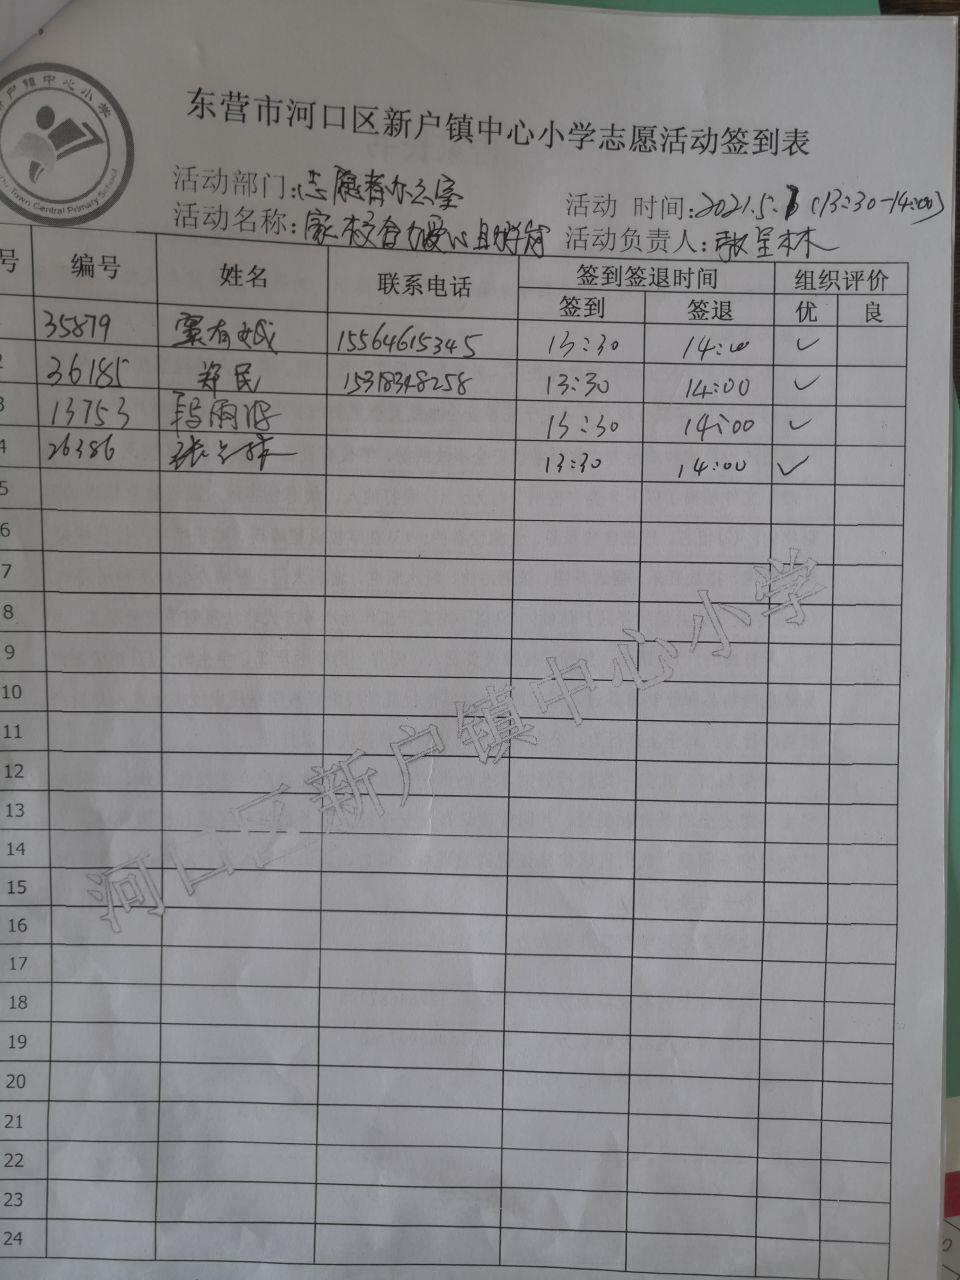 户镇中心小学
Town Central Primary School
东营市河口区新户镇中心小学志愿活动签到表
活动部门:志愿者办公室
活动 时间:2021.5. (13:30-14:00)
活动名称:家校合力爱心
活动负责人:
号 编号 姓名 联系电话 签到签退时间 组织评价
签到 签退 优 良
35879 15564615345 13:30 14:00 ✓
2 36185 郑民 15318348258 13:30 14:00 ✓
3 13753 段雨 13:30 14:00 ✓
4 26386 张 13:30 14:00 ✓
5
6
7
8
9
10
11
12
13
14
15
16
17
18
19
20
21
22
23
24
河口区新户镇中心小学